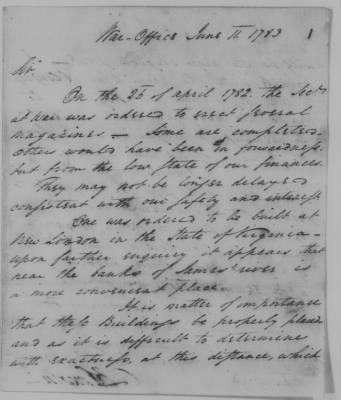 War-Office June 11 1783
1
Sir
On the 26 of april 1782 the Secty
at war was ordered to erect several
magazines — Some are completed
others would have been in forwardness
but from the low state of our finances.
They may not be longer delayed
consistent with our safety and interest
One was ordered to be built at
New London in the State of Virginia —
upon further enquiry it appears that
near the banks of James river is
a more convenient place.
It is matter of importance
that these Buildings be properly placed
and as it is difficult to determine
with exactness, at this distance, which